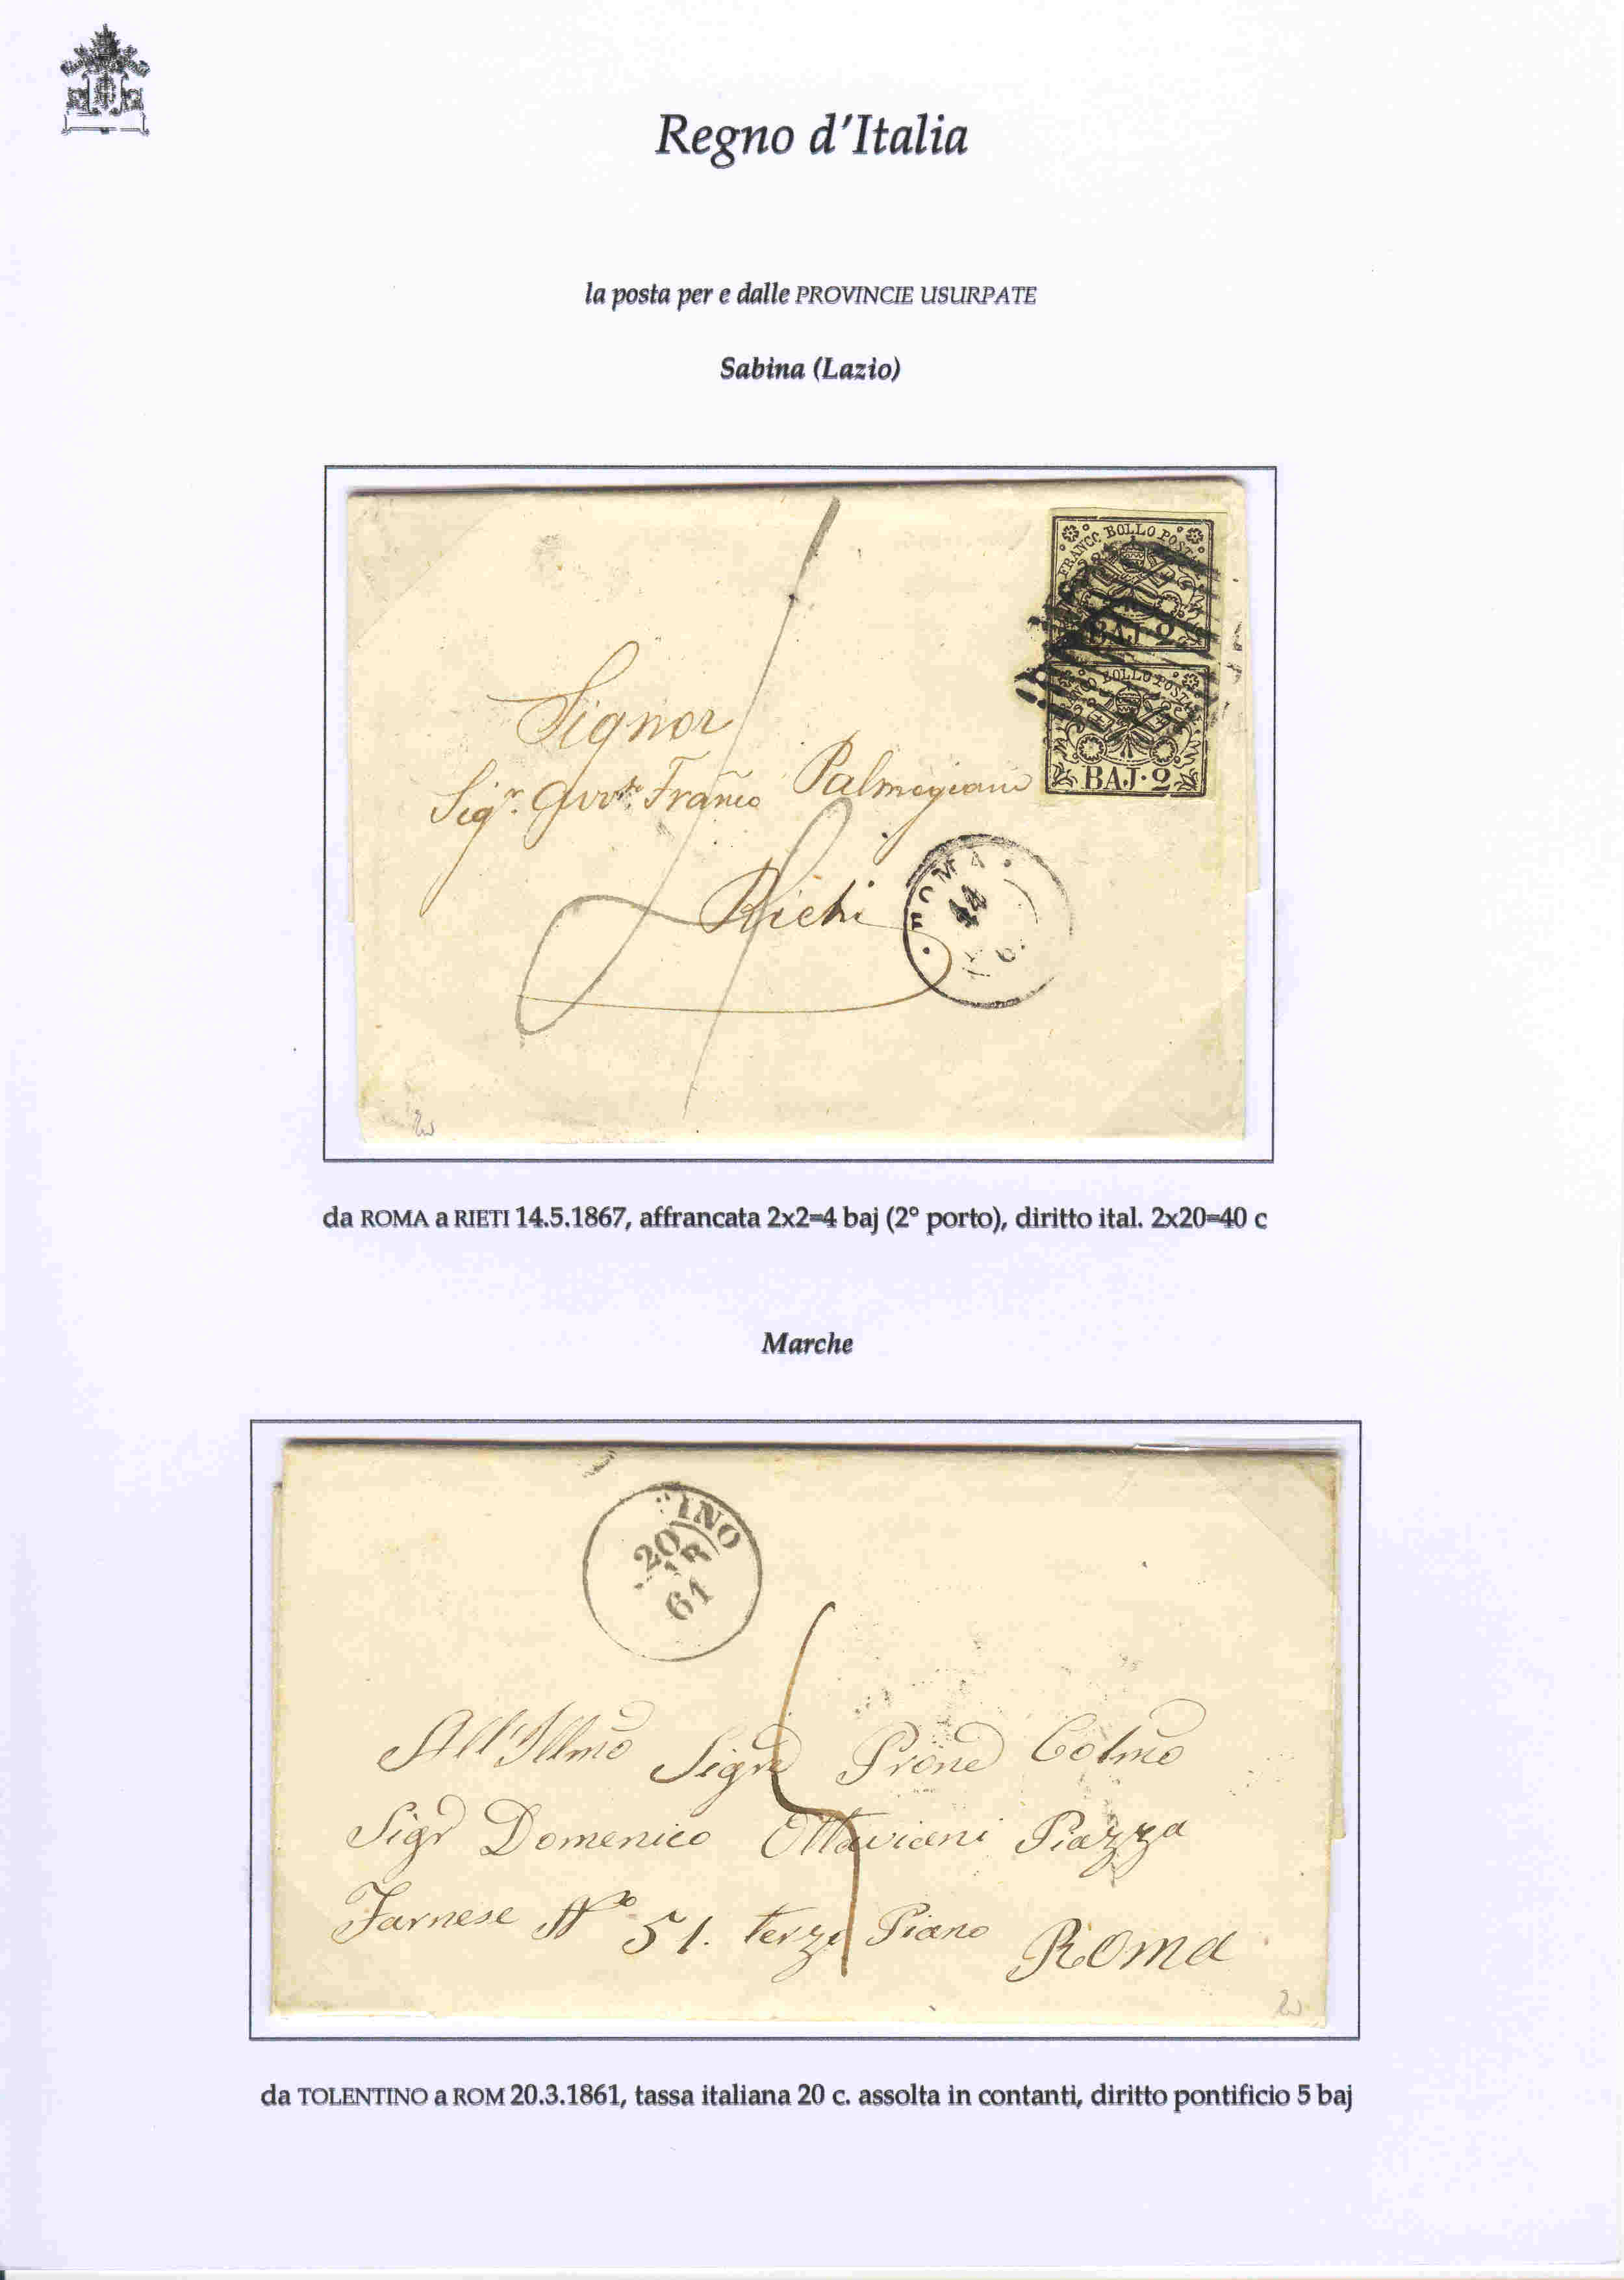 Regno d'Italia
la posta per e dalle PROVINCIE USURPATE
Sabina (Lazio)
FRANCO BOLLO POSTALE
BAJ·2
FRANCO BOLLO POSTALE
BAJ·2
Signor
Sigr. Franco Palmegiani
Rieti
ROMA
14
da ROMA a RIETI 14.5.1867, affrancata 2x2=4 baj (2° porto), diritto ital. 2x20=40 c
Marche
INO
20
61
All'Illmo Sigre Prone Colmo
Sigr Domenico Ottaviani Piazza
Farnese No 51. terzo Piano Roma
da TOLENTINO a ROM 20.3.1861, tassa italiana 20 c. assolta in contanti, diritto pontificio 5 baj